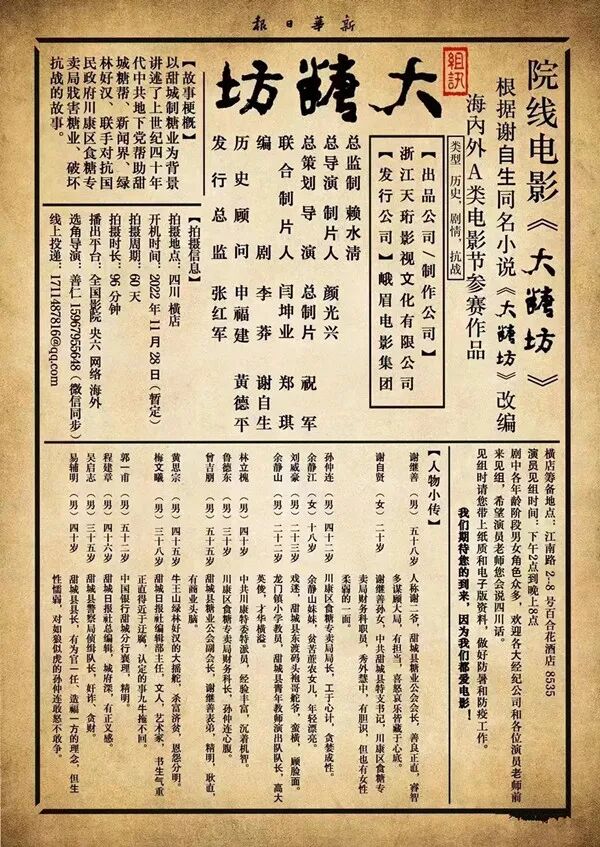 新華日报
院线电影《大糖坊》
根据谢自生同名小说《大糖坊》改编
海内外A类电影节参赛作品
组訊
大糖坊
类型 历史,剧情,抗战
【出品公司/制作公司】
浙江天珩影视文化有限公司
【发行公司】 峨眉电影集团
总监制 赖水清
总导演制片人 颜光兴
总策划导演 总制片 祝军
联合制片人 闫坤业 郑琪
编剧 李莽 谢自生
历史顾问 申福建 黄德平
发行总监 张红军
【故事梗概】
以甜城制糖业为背景
讲述了上世纪四十年
代中共地下党帮助甜
城糖帮、新闻界、绿
林好汉,联手对抗国
民政府川康区食糖专
卖局戕害糖业、破坏
抗战的故事。
【拍摄信息】
拍摄地点:四川 横店
开机时间:2022年11月28日(暂定)
拍摄周期:60天
拍摄时长:96分钟
播出平台:全国影院 央六 网络 海外
选角导演:善仁 15967955648(微信同步)
线上投递:1711487816@qq.com
横店筹备地点:江南路2-8号百合花酒店8535
演员见组时间:下午2点到晚上8点
剧中各年龄阶段男女角色众多,欢迎各大经纪公司和各位演员老师前
来见组,希望演员老师您会说四川话。
见组时请您带上纸质和电子版资料,做好防暑和防疫工作。
我们期待您的到来,因为我们都爱电影!
【人物小传】
谢继善(男)五十八岁 人称谢二爷,甜城县糖业公会会长,善良正直,睿智
多谋顾大局,有担当,喜怒哀乐皆藏于心底。
谢自贤(女)二十岁 谢继善孙女,中共甜城县特支书记,川康区食糖专
卖局财务科职员,秀外慧中,有胆识,但也有女性
柔弱的一面。
孙仲连(男)四十二岁 川康区食糖专卖局局长,工于心计,贪婪成性。
余静江(女)十八岁 余静山妹妹,贫苦蔗农女儿,年轻漂亮。
刘威豪(男)二十三岁 戏迷,甜城县东渡码头袍哥舵爷,蛮横,顾脸面。
余静山(男)二十岁 龙门镇小学教员,甜城县青年教师演出队队长,高大
英俊,才华横溢。
林立槐(男)四十岁 中共川康特委特派员,经验丰富,沉着机智。
鲁德东(男)三十岁 川康区食糖专卖局财务科长,孙仲连心腹。
曾吉朋(男)五十岁 甜城县糖业公会副会长,谢继善表弟,精明,耿直,
有商业头脑。
黄思宗(男)四十五岁 牛王山绿林好汉的一摇舵,杀富济贫,恩怨分明。
梅文曦(男)三十八岁 甜城日报社编辑部主任,文人,艺术家,书生气重
正直得近于迂腐,认定的事九牛拖不回。
郭一甫(男)五十二岁 中国银行甜城分行襄理,精明。
程建章(男)四十六岁 甜城日报社总编辑,城府深,有正义感。
吴启志(男)三十五岁 甜城县警察局侦缉队长,奸诈,贪财。
易辅明(男)四十岁 甜城县县长,有为官一任、造福一方的理念,但生
性懦弱,对如狼似虎的孙仲连敢怒不敢争。